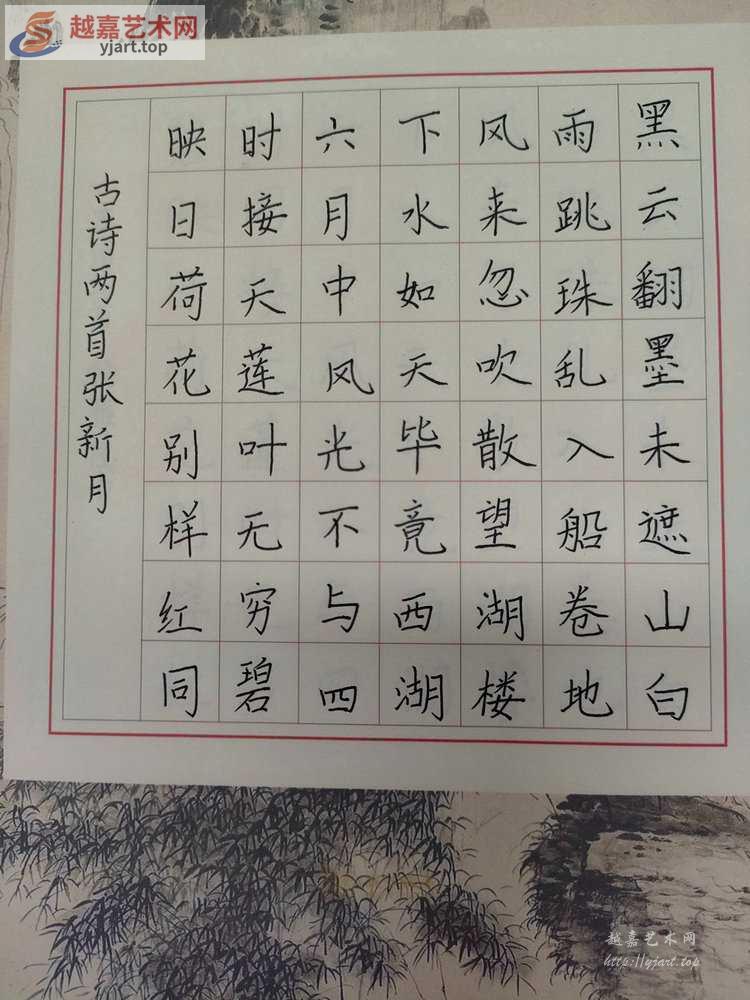 越嘉艺术网
yjart.top
黑云翻墨未遮山白
雨跳珠乱入船卷地
风来忽吹散望湖楼
下水如天毕竟西湖
六月中风光不与四
时接天莲叶无穷碧
映日荷花别样红同
古诗两首张新月
越嘉艺术网
http://yjart.top